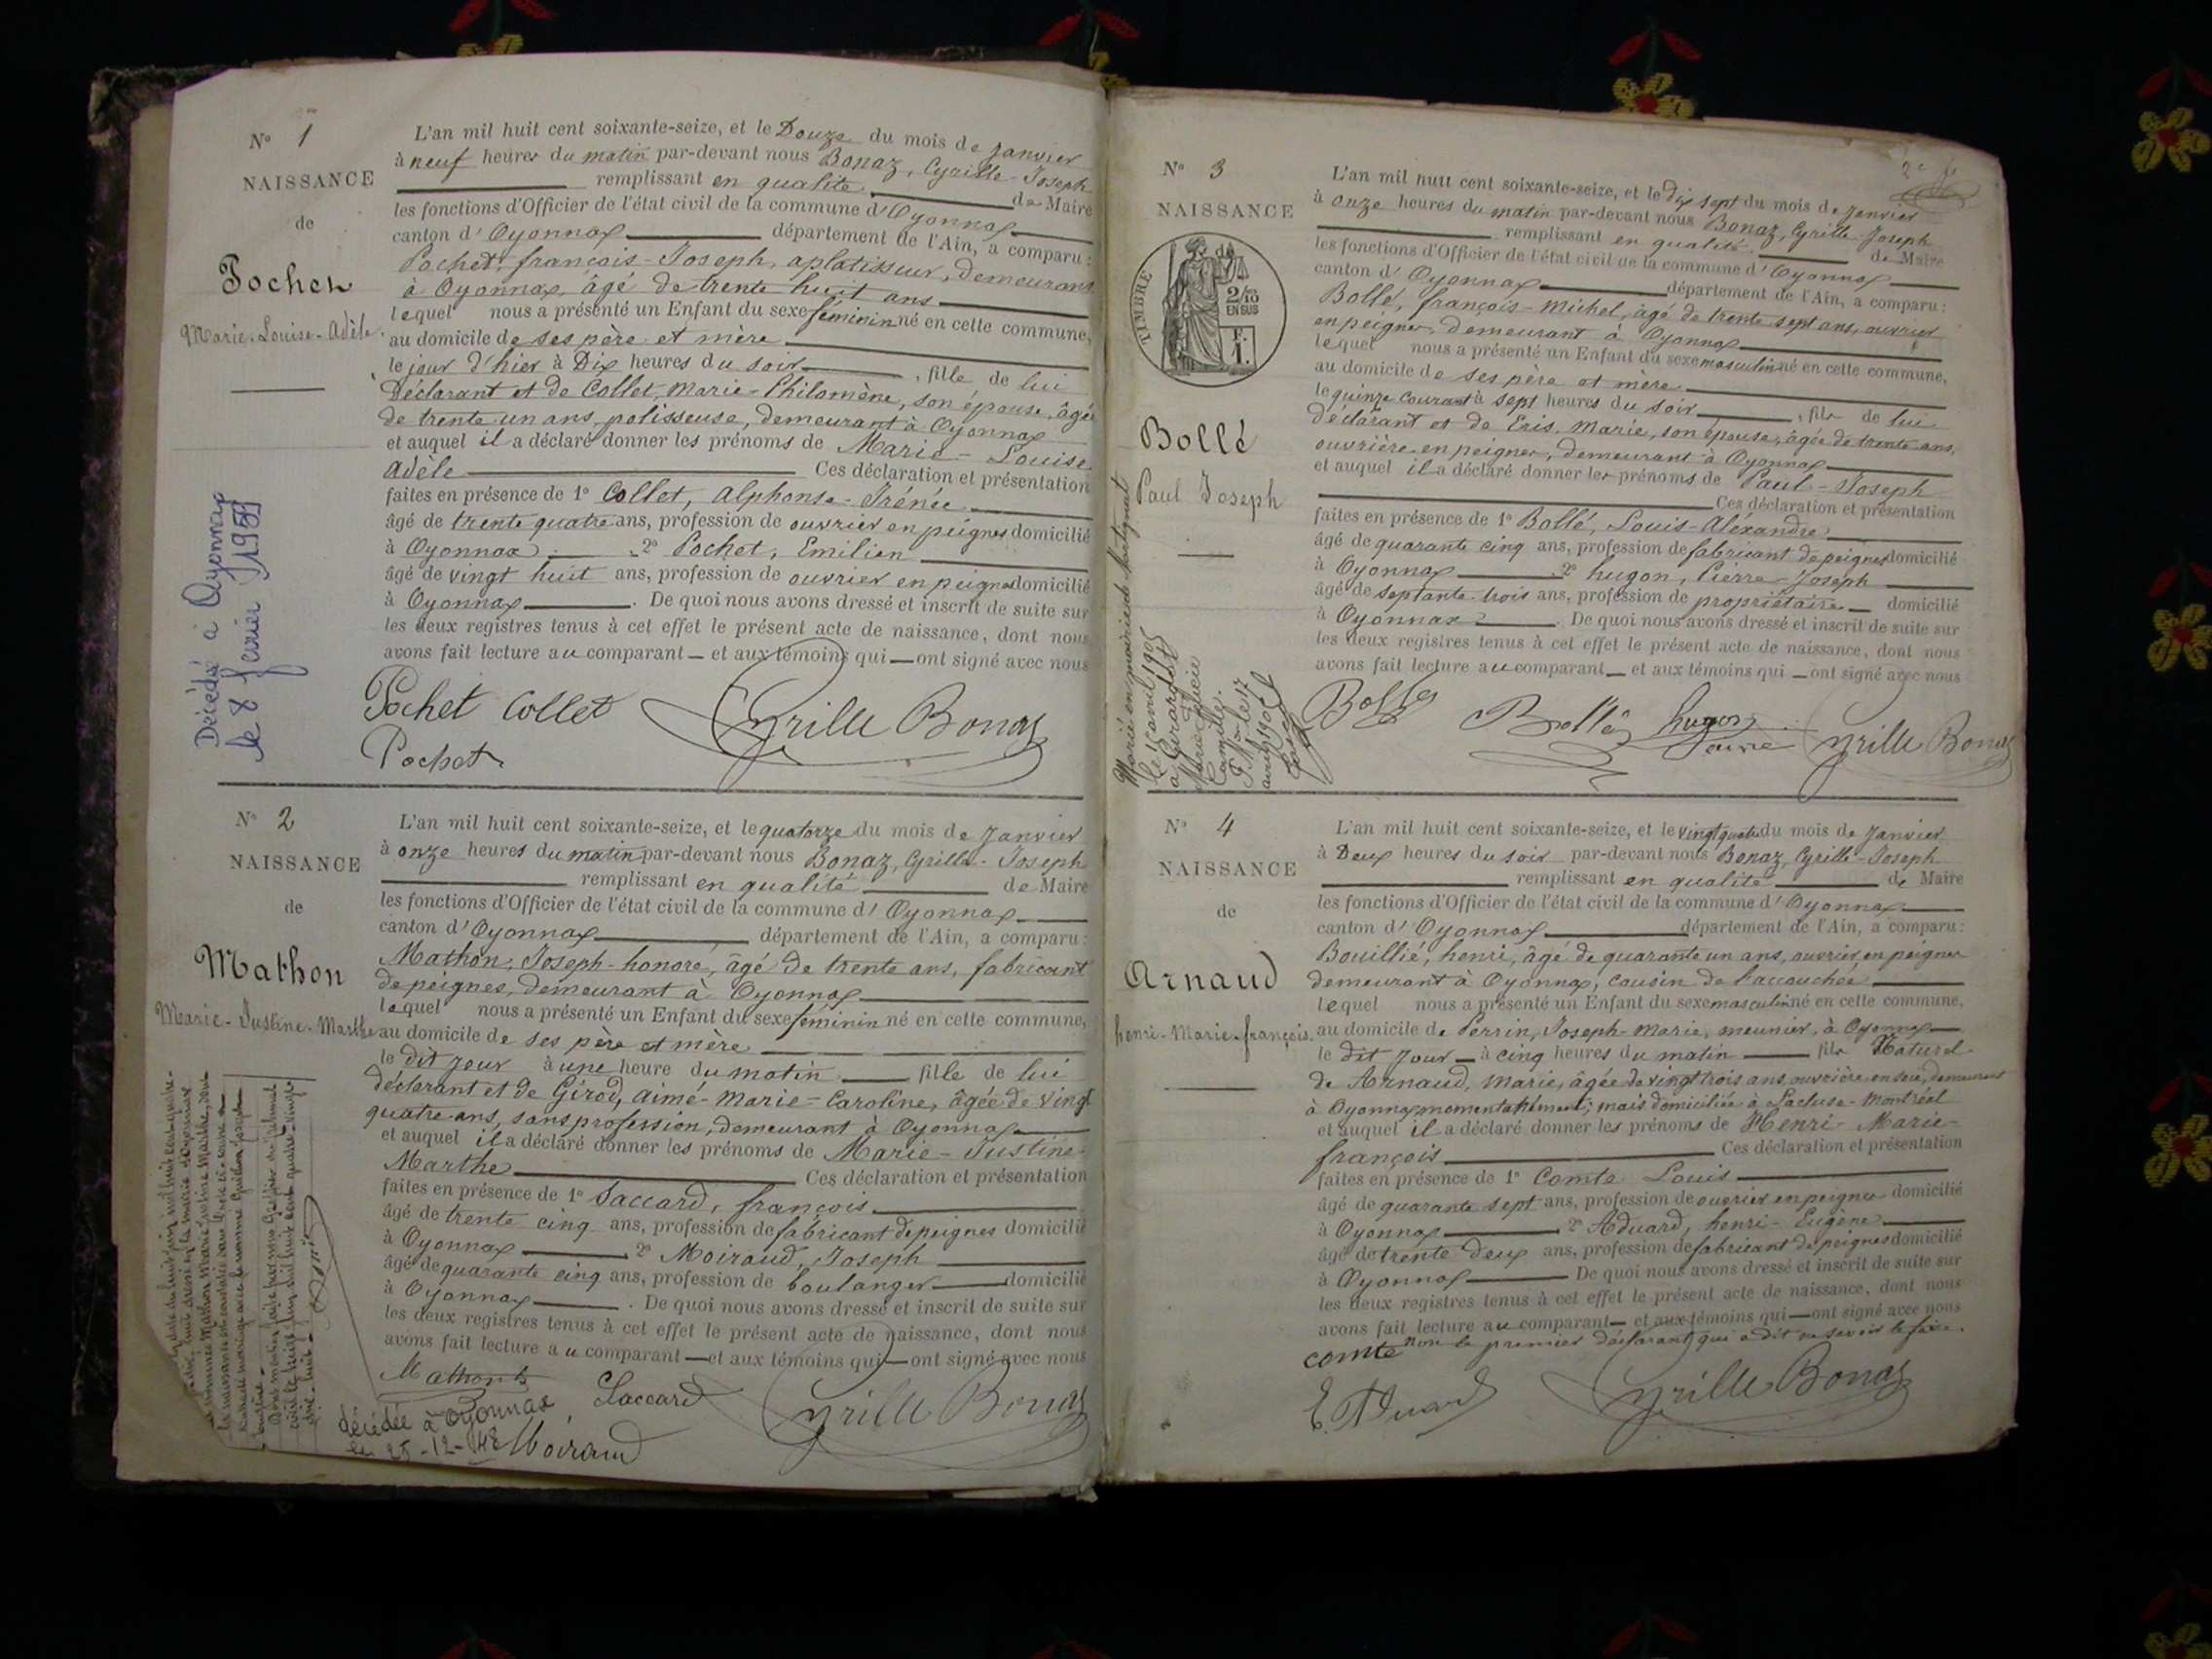 N° 1
NAISSANCE
de
Pochet
Marie-Louise-Adèle
Décédé à Oyonnax
le 8 février 1951
L'an mil huit cent soixante-seize, et le Douze du mois de Janvier
à neuf heures du matin par-devant nous Bonaz, Cyrille-Joseph
remplissant en qualité de Maire
les fonctions d'Officier de l'état civil de la commune d'Oyonnax
canton d'Oyonnax département de l'Ain, a comparu :
Pochet, françois-Joseph, aplatisseur, demeurant
à Oyonnax, âgé de trente huit ans
lequel nous a présenté un Enfant du sexe féminin né en cette commune,
au domicile de ses père et mère
le jour d'hier à Dix heures du soir, fille de lui
Déclarant et de Collet, Marie-Philomène, son épouse, âgée
de trente un ans, polisseuse, demeurant à Oyonnax
et auquel il a déclaré donner les prénoms de Marie-Louise
Adèle Ces déclaration et présentation
faites en présence de 1° Collet, Alphonse-Irénée
âgé de trente quatre ans, profession de ouvrier en peignes domicilié
à Oyonnax 2° Pochet, Emilien
âgé de vingt huit ans, profession de ouvrier en peignes domicilié
à Oyonnax. De quoi nous avons dressé et inscrit de suite sur
les deux registres tenus à cet effet le présent acte de naissance, dont nous
avons fait lecture au comparant et aux témoins qui ont signé avec nous
Pochet Collet Cyrille Bonaz
Pochet
N° 2
NAISSANCE
de
Mathon
Marie-Justine-Marthe
L'an mil huit cent soixante-seize, et le quatorze du mois de Janvier
à onze heures du matin par-devant nous Bonaz, Cyrille-Joseph
remplissant en qualité de Maire
les fonctions d'Officier de l'état civil de la commune d'Oyonnax
canton d'Oyonnax département de l'Ain, a comparu :
Mathon, Joseph-honoré, âgé de trente ans, fabricant
de peignes, demeurant à Oyonnax
lequel nous a présenté un Enfant du sexe féminin né en cette commune,
au domicile de ses père et mère
le dit jour à une heure du matin fille de lui
déclarant et de Girod, aimé-Marie-Caroline, âgée de vingt
quatre ans, sans profession, demeurant à Oyonnax
et auquel il a déclaré donner les prénoms de Marie-Justine-
Marthe Ces déclaration et présentation
faites en présence de 1° Jaccard, françois
âgé de trente cinq ans, profession de fabricant de peignes domicilié
à Oyonnax 2° Moiraud, Joseph
âgé de quarante cinq ans, profession de boulanger domicilié
à Oyonnax. De quoi nous avons dressé et inscrit de suite sur
les deux registres tenus à cet effet le présent acte de naissance, dont nous
avons fait lecture au comparant et aux témoins qui ont signé avec nous
Mathon Jaccard Cyrille Bonaz
Moiraud
décédée à Oyonnax
le 25-12-48
N° 3
NAISSANCE
TIMBRE
2/10 EN SUS
Bollé
Paul Joseph
L'an mil huit cent soixante-seize, et le dix sept du mois de Janvier
à onze heures du matin par-devant nous Bonaz, Cyrille-Joseph
remplissant en qualité de Maire
les fonctions d'Officier de l'état civil de la commune d'Oyonnax
canton d'Oyonnax département de l'Ain, a comparu :
Bollé, françois-Michel, âgé de trente sept ans, ouvrier
en peignes, demeurant à Oyonnax
lequel nous a présenté un Enfant du sexe masculin né en cette commune,
au domicile de ses père et mère
le quinze courant à sept heures du soir, fils de lui
déclarant et de Eris, Marie, son épouse, âgée de trente ans,
ouvrière en peignes, demeurant à Oyonnax
et auquel il a déclaré donner les prénoms de Paul-Joseph
Ces déclaration et présentation
faites en présence de 1° Bollé, Louis-Aléxandre
âgé de quarante cinq ans, profession de fabricant de peignes domicilié
à Oyonnax 2° hugon, Pierre-Joseph
âgé de septante trois ans, profession de propriétaire domicilié
à Oyonnax. De quoi nous avons dressé et inscrit de suite sur
les deux registres tenus à cet effet le présent acte de naissance, dont nous
avons fait lecture au comparant et aux témoins qui ont signé avec nous
Bollé Bollé hugon Cyrille Bonaz
N° 4
NAISSANCE
de
Arnaud
henri-Marie-françois
L'an mil huit cent soixante-seize, et le vingt quatre du mois de Janvier
à Deux heures du soir par-devant nous Bonaz, Cyrille-Joseph
remplissant en qualité de Maire
les fonctions d'Officier de l'état civil de la commune d'Oyonnax
canton d'Oyonnax département de l'Ain, a comparu :
Bouillié, henri, âgé de quarante un ans, ouvrier en peignes
demeurant à Oyonnax, cousin de l'accouchée
lequel nous a présenté un Enfant du sexe masculin né en cette commune,
au domicile de Perrin, Joseph-Marie, meunier, à Oyonnax
le dit jour à cinq heures du matin fils Naturel
de Arnaud, Marie, âgée de vingt trois ans, ouvrière en soie, demeurant
à Oyonnax momentanément ; mais domiciliée à Lacluse-Montréal
et auquel il a déclaré donner les prénoms de Henri-Marie-
françois Ces déclaration et présentation
faites en présence de 1° Comte Louis
âgé de quarante sept ans, profession de ouvrier en peignes domicilié
à Oyonnax 2° Aduard, henri-Eugène
âgé de trente deux ans, profession de fabricant de peignes domicilié
à Oyonnax De quoi nous avons dressé et inscrit de suite sur
les deux registres tenus à cet effet le présent acte de naissance, dont nous
avons fait lecture au comparant et aux témoins qui ont signé avec nous
non le premier déclarant qui a dit ne savoir le faire.
comte
E. Aduard Cyrille Bonaz